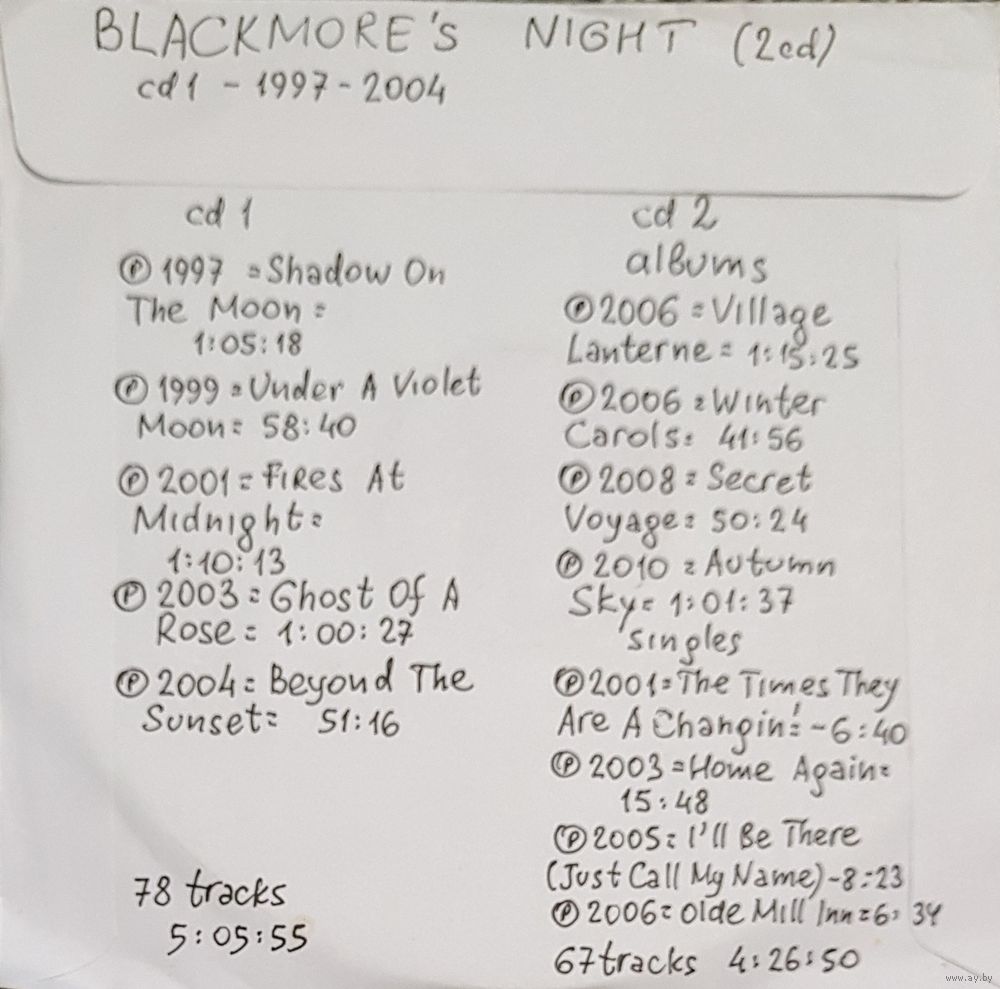 BLACKMORE's NIGHT (2cd)
cd1 - 1997-2004
cd 1
℗ 1997 = Shadow On
The Moon =
1:05:18
℗ 1999 = Under A Violet
Moon = 58:40
℗ 2001 = Fires At
Midnight =
1:10:13
℗ 2003 = Ghost Of A
Rose = 1:00:27
℗ 2004 = Beyond The
Sunset = 51:16
78 tracks
5:05:55
cd 2
albums
℗ 2006 = Village
Lanterne = 1:15:25
℗ 2006 = Winter
Carols = 41:56
℗ 2008 = Secret
Voyage = 50:24
℗ 2010 = Autumn
Sky = 1:01:37
singles
℗ 2001 = The Times They
Are A Changin' = -6:40
℗ 2003 = Home Again =
15:48
℗ 2005 = I'll Be There
(Just Call My Name) - 8:23
℗ 2006 = Olde Mill Inn = 6:34
67 tracks 4:26:50
www.ay.by